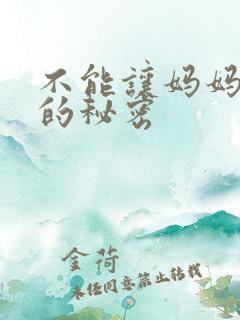 不能讓妈妈
的秘密
金荷
未经同意禁止转载